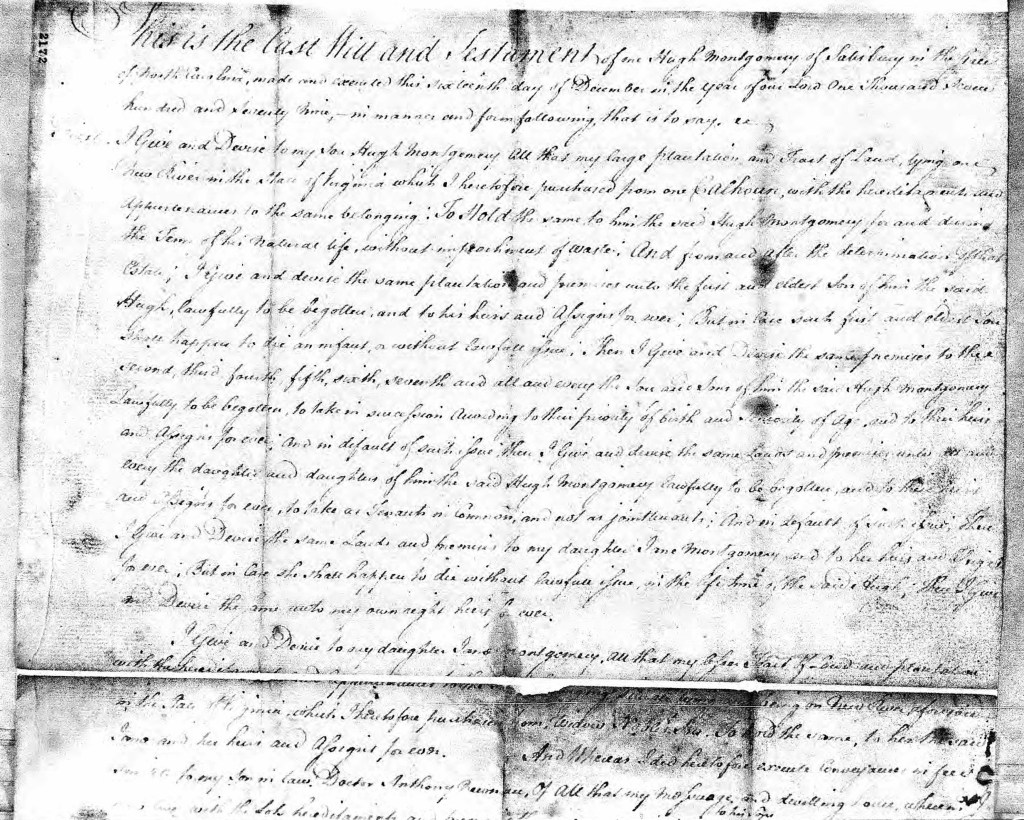 2172
This is the Last Will and Testament, of me Hugh Montgomery of Salisbury in the
of North Carolina, made and executed this sixteenth day of December in the year of our Lord One Thousand Seven
hundred and seventy nine, — in manner and form following, that is to say.
First. I Give and Devise to my Son Hugh Montgomery All that my large plantation and Tract of Land, lying on
New River in the State of Virginia which I heretofore purchased from one Calhoun, with the hereditaments and
appurtenances to the same belonging: To Hold the same to him the said Hugh Montgomery for and during
the Term of his Natural life, without impeachment of waste; And from and after the determination of that
Estate; I Give and devise the same plantation and premises unto the first and eldest Son of him the said
Hugh, lawfully to be begotten, and to his heirs and Assigns for ever; But in Case such first and eldest Son
shall happen to die an infant, or without lawfull issue; Then I Give and Devise the same premises to the
second, third, fourth, fifth, sixth, seventh and all and every the Son and Sons of him the said Hugh Montgomery
Lawfully to be begotten, to take in succession According to their priority of birth and seniority of age, and to their heirs
and Assigns for ever; And in default of such issue then I Give and devise the same Lands and premises unto all and
every the daughter and daughters of him the said Hugh Montgomery lawfully to be begotten, and to their heirs
and Assigns for ever, to take as Tenants in Common, and not as jointtenants; And in default of such issue, Then
I Give and Devise the same Lands and premises to my daughter Jane Montgomery and to her heirs and Assigns
for ever; But in Case she shall happen to die without lawfull issue, in the life time of the said Hugh; Then I Give
and Devise the same unto my own right heirs for ever.
I Give and Devise to my daughter Jane Montgomery, All that my other Tract of Land and plantation
with the hereditaments and appurtenances to the being on New River aforesaid
in the State of Virginia, which I heretofore purchased from Widow To hold the same, to her the said
Jane and her heirs and Assigns for ever. And Whereas I did heretofore execute Conveyances in fee
to my Son in law, Doctor Anthony Newman, Of All that my messuage, and dwelling house, wherein
with the Lots hereditaments and